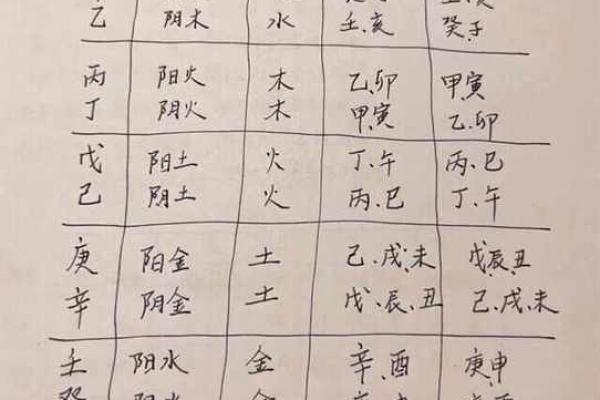 乙 阴木 水 壬、亥 癸、子
丙 阳火 木 乙、卯 甲、寅
丁 阴火 木 甲、寅 乙、卯
戊 阳土 火 丁、午 丙、巳
己 阴土 火 丙、巳 丁、午
庚 阳金 土 己、戌、未 戊、辰、丑
辛 阴金 土 戊、辰、丑 己、戌、未
壬 阳水 金 辛、酉 庚、申